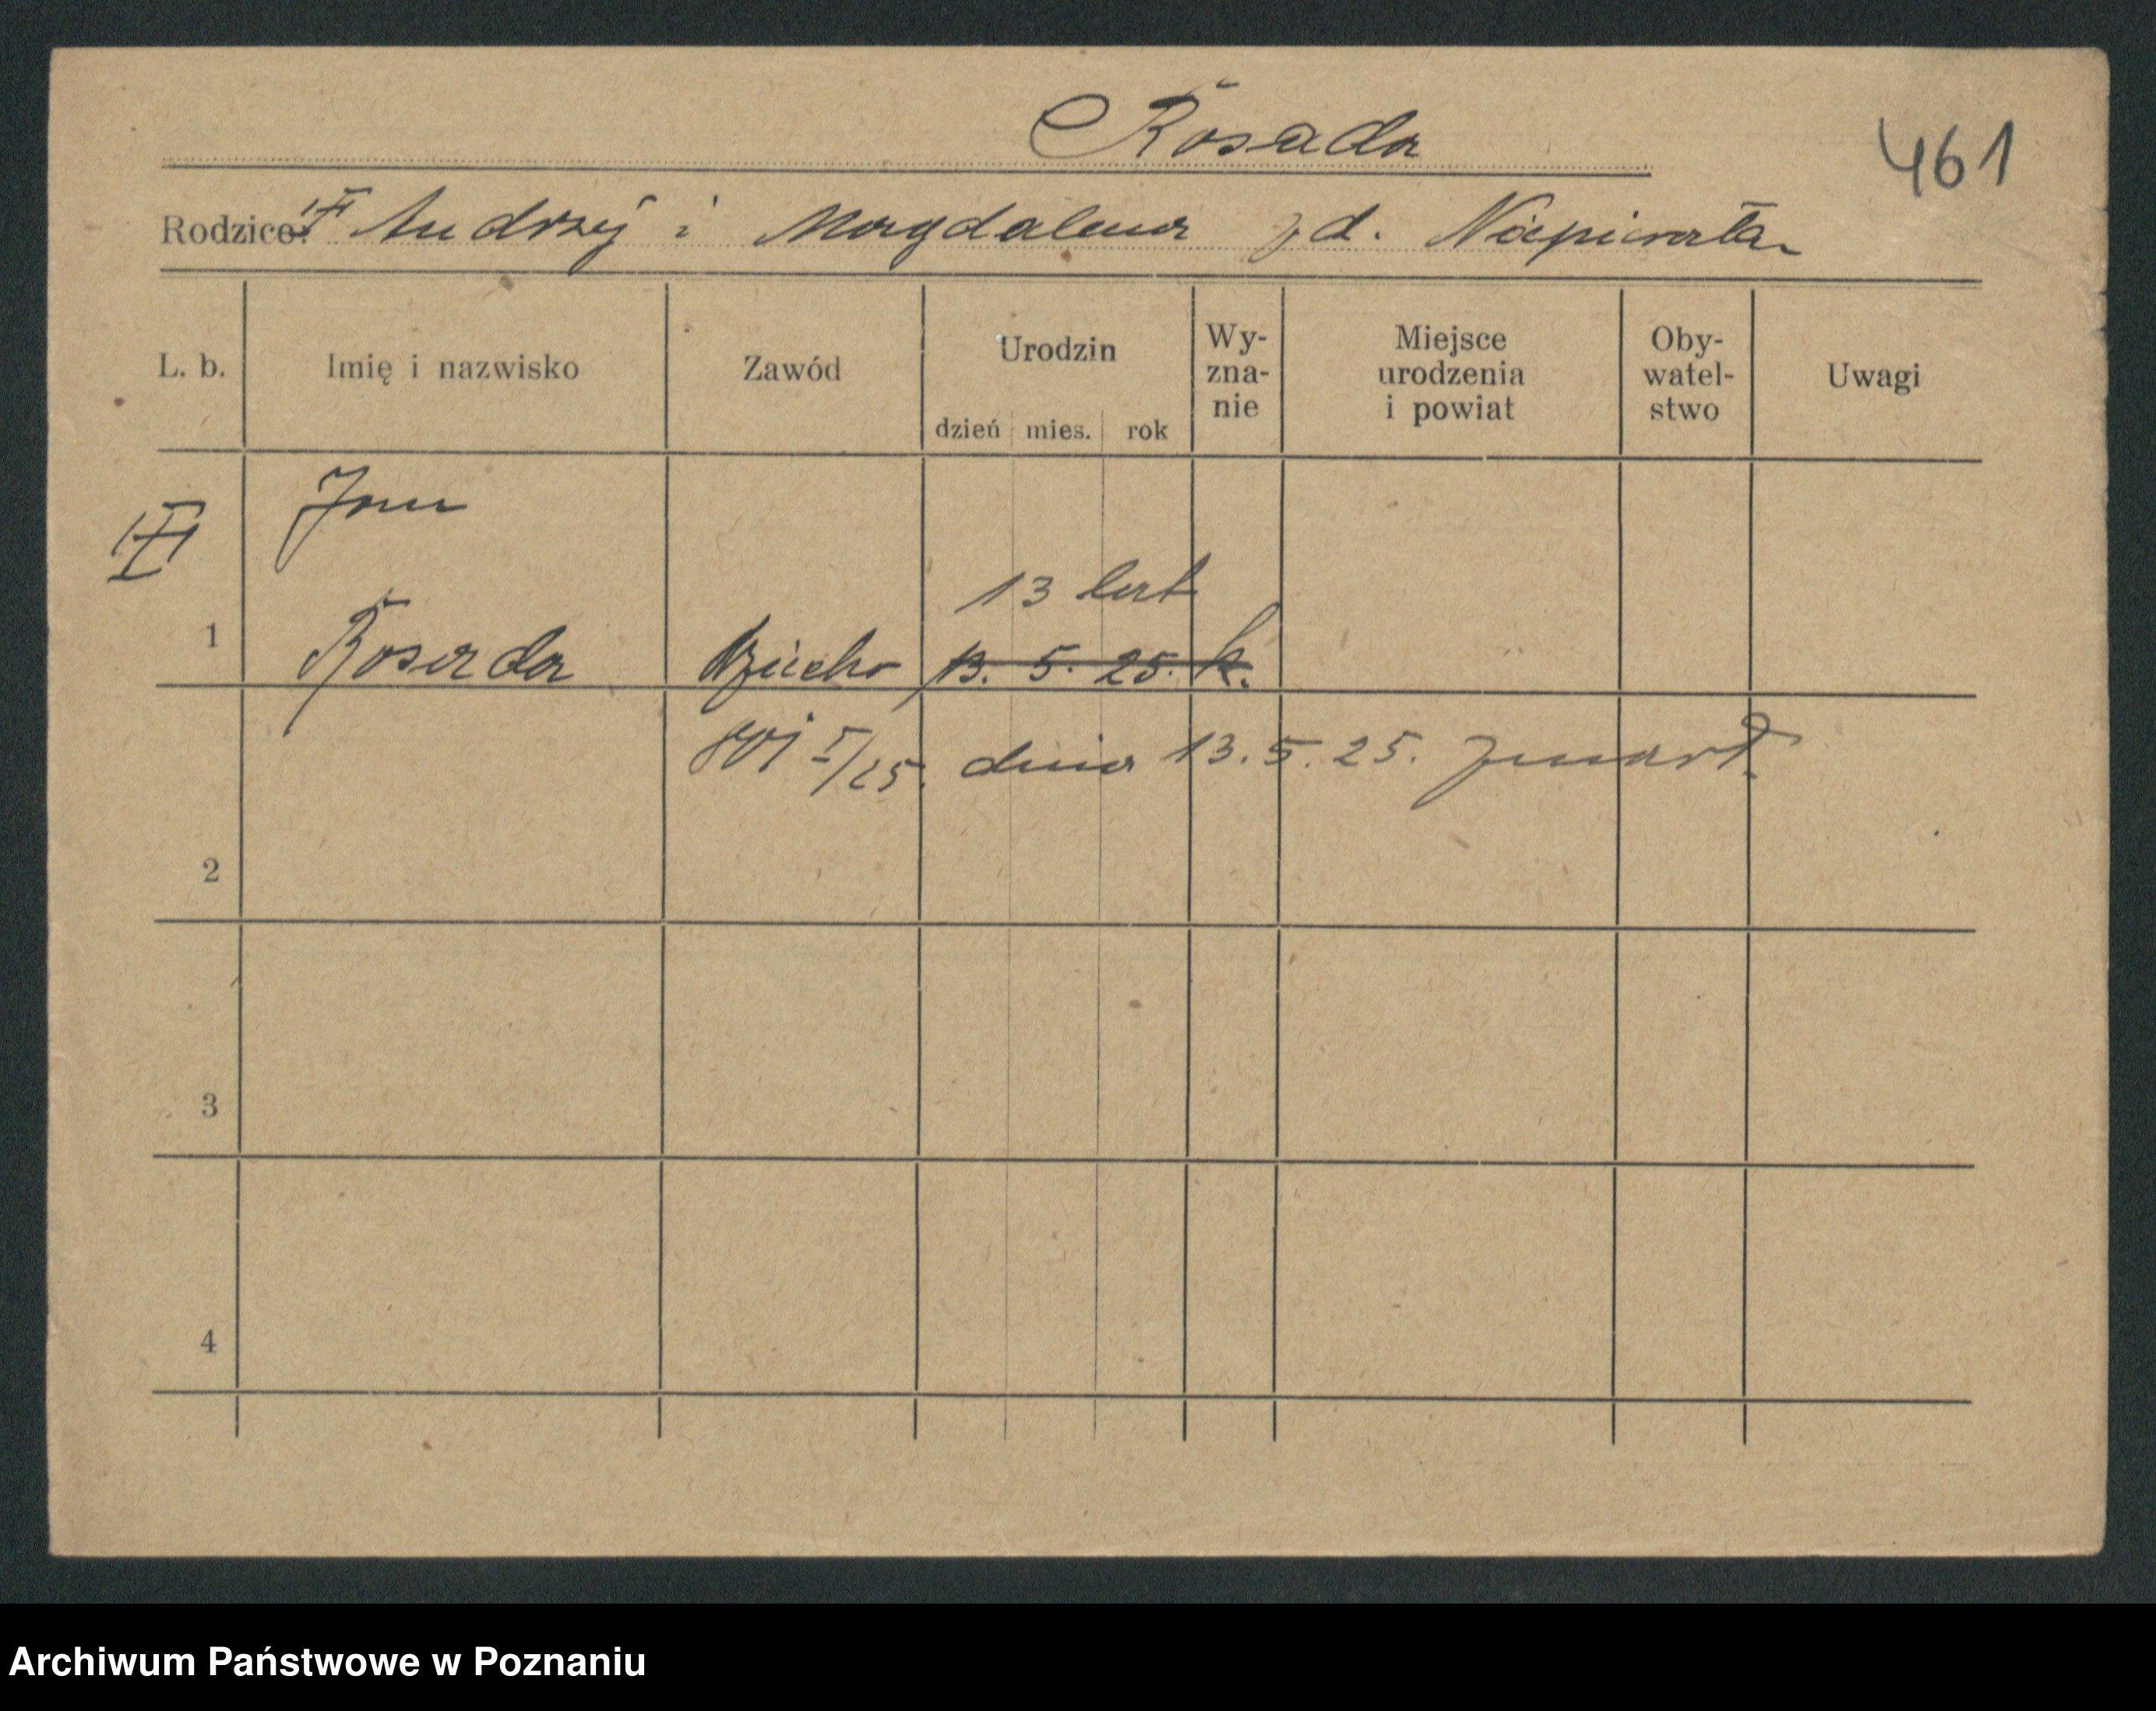 Rosada
461
Rodzice: Andrzej i Magdalena zd. Napierała
L. b.
Imię i nazwisko
Zawód
Urodzin
dzień mies. rok
Wy-
zna-
nie
Miejsce
urodzenia
i powiat
Oby-
watel-
stwo
Uwagi
Jan
13 lat
1 Rosada 13. 5. 25. k.
801 I/25. dnia 13.5.25. zmarł.
2
3
4
Archiwum Państwowe w Poznaniu